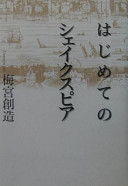 はじめての
シェイクスピア
梅宮創造